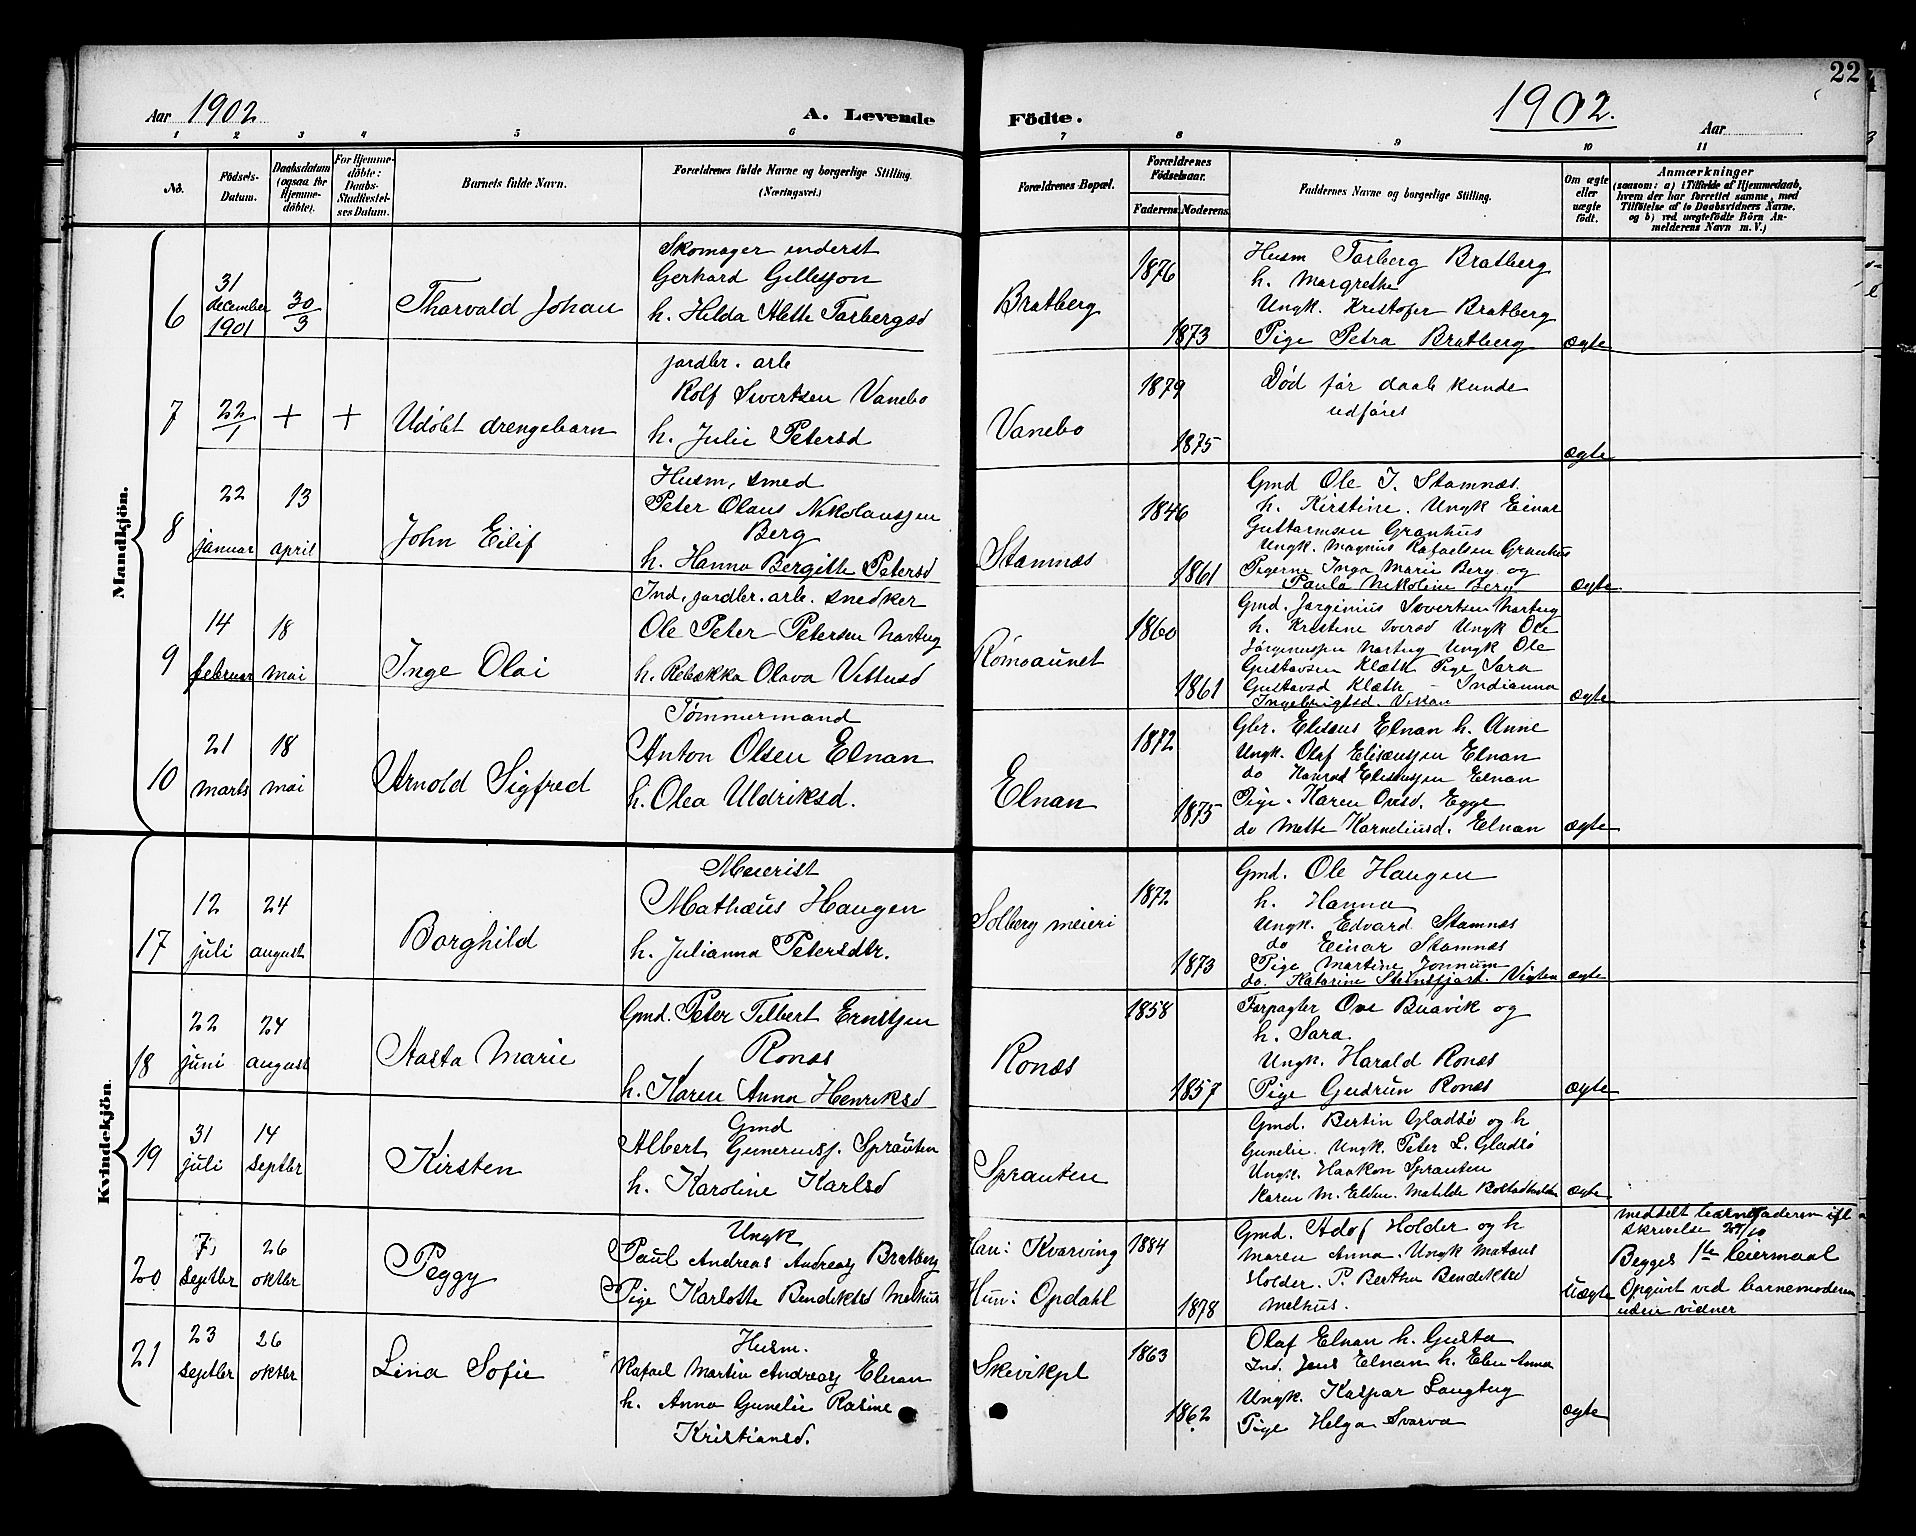 22
Aar 1902
A. Levende
Födte.
1902.
Aar
1 2 3 4 5 6 7 8 9 10 11
No.
Födsels-Datum.
Daabsdatum (ogsaa for Hjemme-döbte).
For Hjemme-döbte: Daabs-Stadfæstel-ses Datum.
Barnets fulde Navn.
Forældrenes fulde Navne og borgerlige Stilling. (Næringsvei.)
Forældrenes Bopæl.
Forældrenes Födselsaar.
Faderens. Moderens.
Faddernes Navne og borgerlige Stilling.
Om ægte eller uægte födt.
Anmærkninger
(saasom: a) i Tilfælde af Hjemmedaab,
hvem der har forrettet samme, med
Tilföielse af to Daabsvidners Navne.
og b) ved uægtefödte Börn An-
melderens Navn m. V.)
Mandkjön.
6
31 december 1901
30/3
Thorvald Johan
Skomager inderst
Gerhard Gillesson
h. Hilda Alette Torbergsd
Bratberg
1876
1873
Husm Torberg Bratberg
h. Margrethe
Ungk. Kristofer Bratberg
Pige Petra Bratberg
ægte
7
22/1
+
+
Udöbt drengebarn
jordbr. arb
Rolf Sivertsen Vanebo
h. Julie Petersd
Vanebo
1879
1875
Död för daab kunde
udföres
ægte
8
22 januar
13 april
John Eilif
Husm, smed
Peter Olaus Nikolaussen
Berg
h. Hanna Bergitte Petersd
Stamnæs
1846
1861
Gmd Ole J. Stamnæs.
h. Kirstine. Ungk Einar
Guttormsen Granhus
Ungk. Magnus Rafaelsen Granhus
Pigerne Inga Marie Berg og
Paula Nikoline Berg
ægte
9
14 februar
18 mai
Inge Olai
Ind, jordbr. arb. snedker
Ole Peter Petersen Hartug
h. Rebekka Olava Vittusd
Römoaunet
1860
1861
Gmd. Jörginius Sivertsen Hartug
h. Kristine Iversd Ungk Ole
Jörginussen Hartug Ungk Ole
Gustavsen Klæth Pige Sara
Gustavsd Klæth – Indianna
Ingebrigtsd. Vikan
ægte
10
21 marts
18 mai
Arnold Sigfred
Tömmermand
Anton Olsen Elnan
h. Olea Uldriksd.
Elnan
1872
1875
Gbr. Elisæus Elnan h. Anne
Ungk. Olaf Elisæussen Elnan
do Konrad Elisæussen Elnan
Pige. Karen Ovesd. Egge
do Mette Korneliusd. Elnan
ægte
Kvindekjön.
17
12 juli
24 august
Borghild
Meierist
Mathæus Haugen
h. Julianna Petersdtr.
Solberg meieri
1872
1873
Gmd. Ole Haugen
h. Hanna
Ungk. Edvard Stamnæs
do Einar Stamnæs
Pige Martine Jonnum
do. Katarine Steinsfjord. Vigten
ægte
18
22 juni
24 august
Aasta Marie
Gmd. Peter Tilbert Ernstsen
Ronæs
h. Karen Anna Henriksd
Ronæs
1858
1857
Forpagter Ove Buavik og
h. Sara
Ungk. Harald Ronæs
Pige Gudrun Ronæs
ægte
19
31 juli
14 septbr
Kirsten
Gmd
Albert Gunerinss. Sprauten
h. Karoline Karlsd
Sprauten
Gmd. Bertin Gladsö og h
Gunelie. Ungk. Peter L. Gladsö
Ungk. Haakon Sprauten
Karen M. Elden. Matilde
ægte
20
7 septbr
26 oktbr
Peggy
Ungk
Paul Andreas Andreass Bratberg
Pige Karlotte Bendiksd Melhus
Han: Kvarving
Hun: Opdahl
1884
1878
Gmd. Adof Holder og h
Maren Anna. Ungk Mataus
Holder. P. Bertha Bendiksd
Melhus.
Uægte
meddelt barnefaderen ifl
skrivelse 29/10
Begges 1ste leiermaal
Opgivet ved barnemoderen
uden vidner
21
23 septbr
26 oktbr
Lina Sofie
Husm.
Rafael Martin Andreass Elnan
h. Anna Gunelie Rasine
Kristiansd.
Skevikpl
1863
1862
Olaf Elnan h. Gusta
Ind. Jens Elnan h. Elen Anna
Ungk. Kaspar Langtug
Pige Helga Svarva
ægte